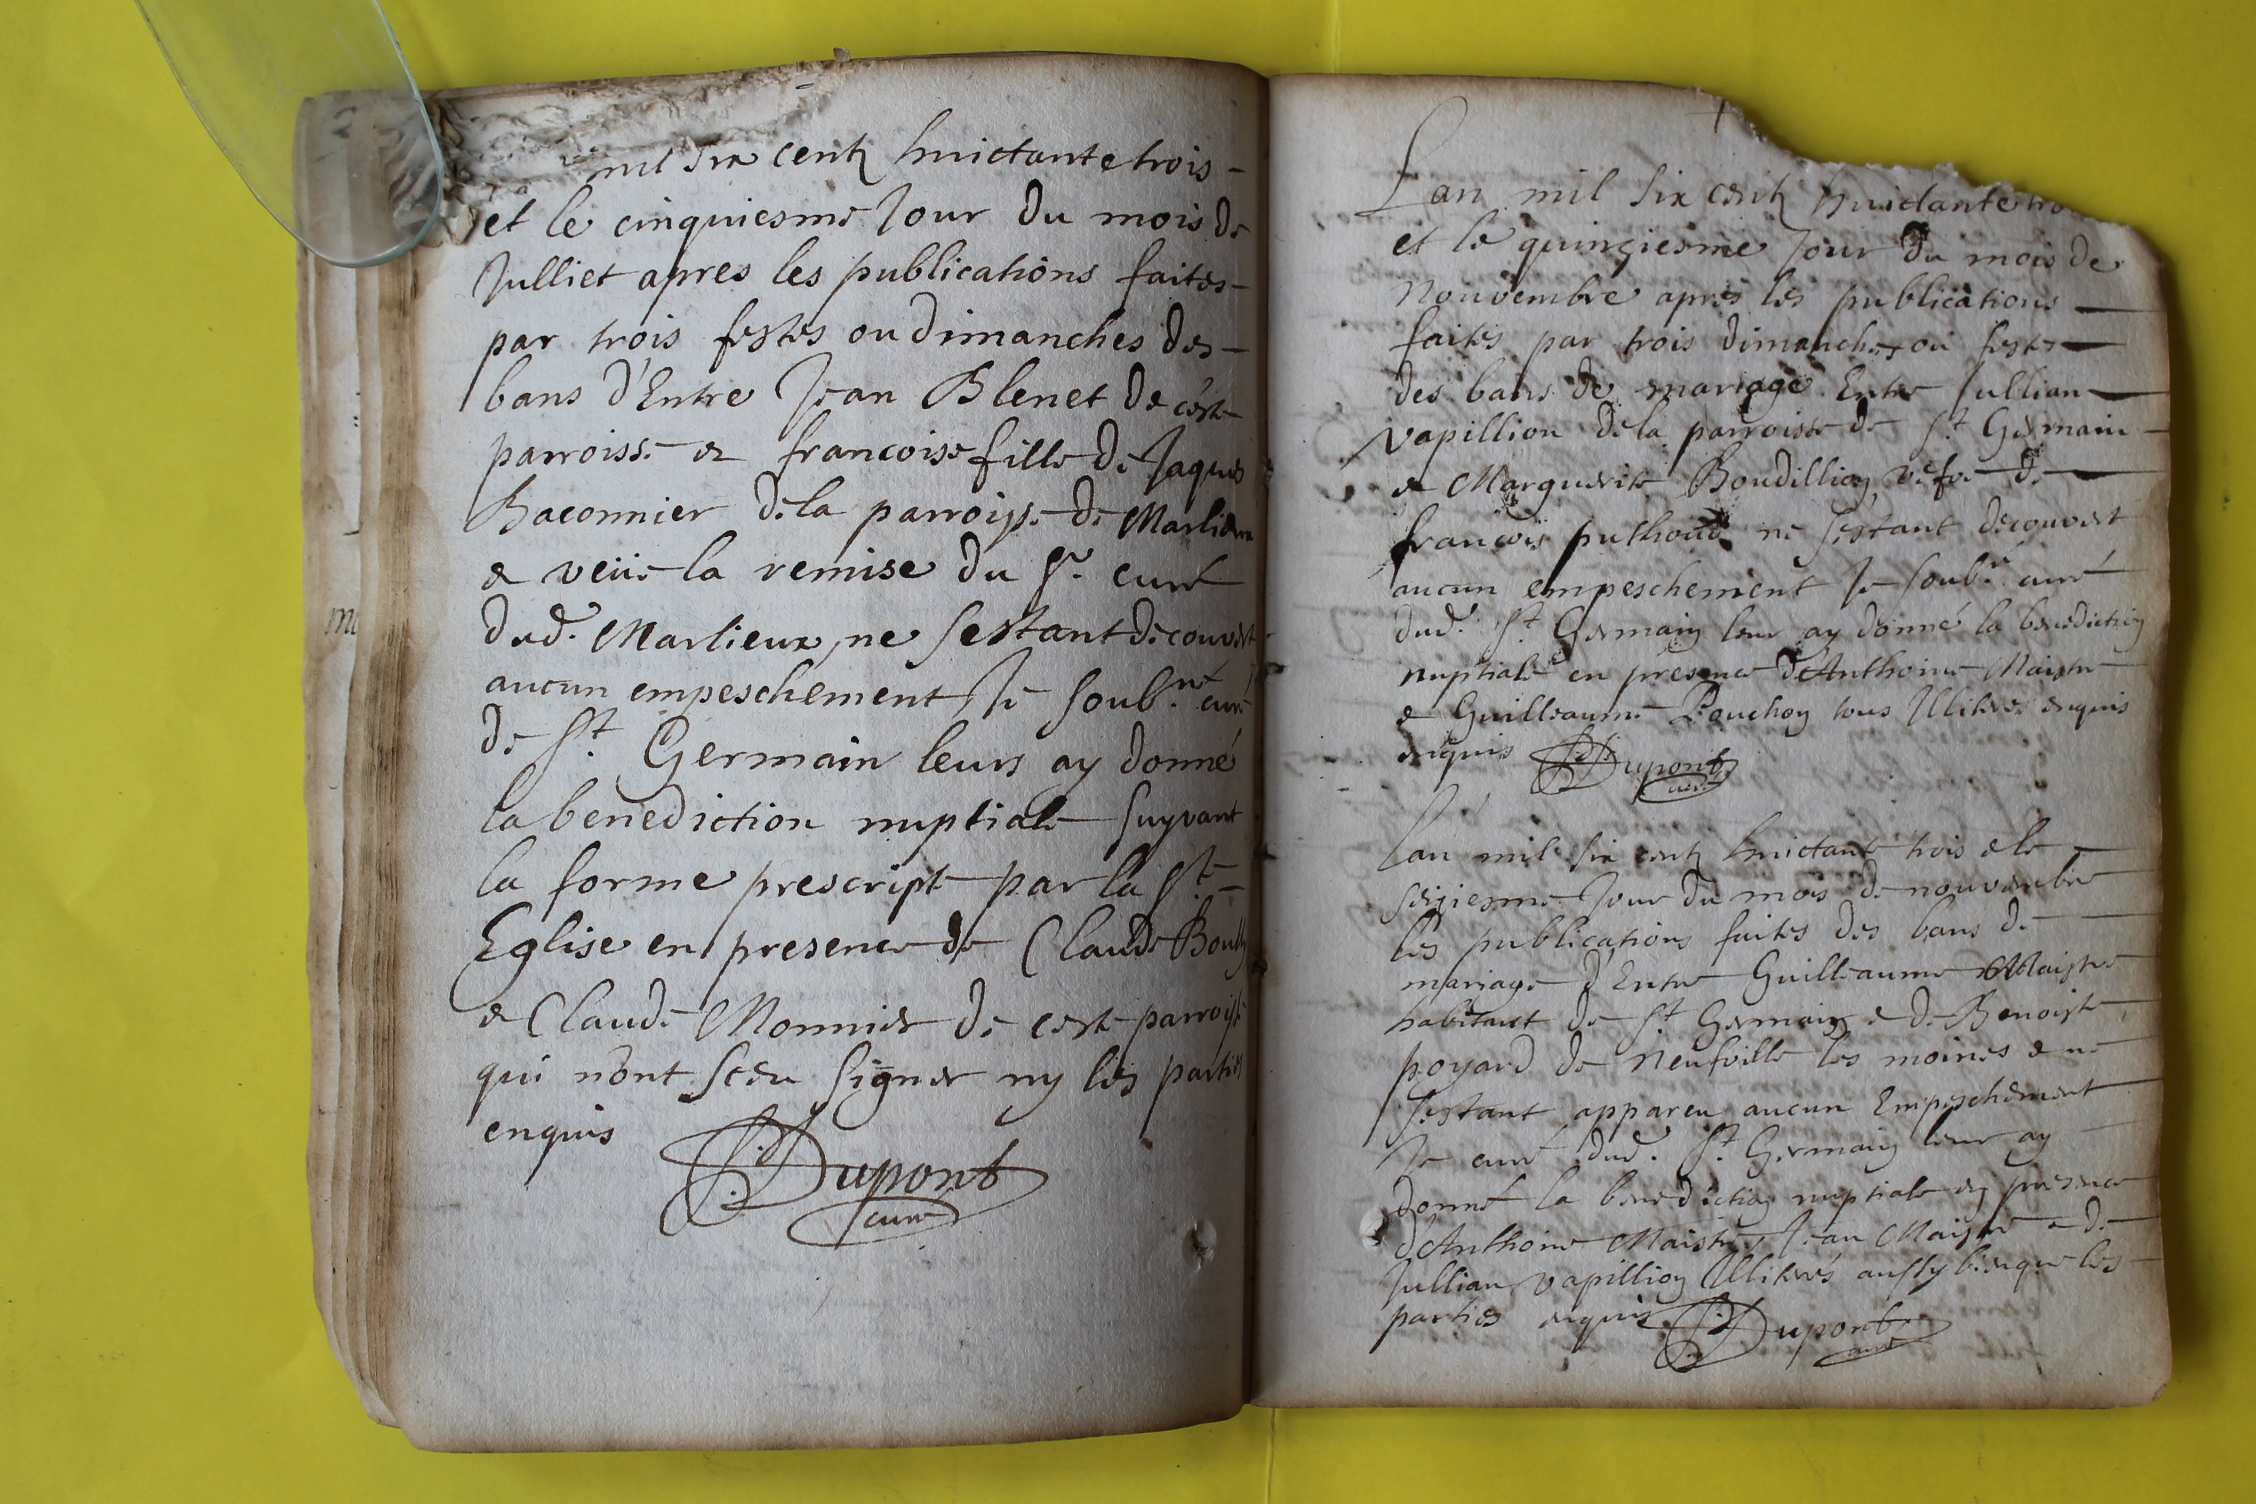 mil six centz huictante trois
et le cinquiesme Jour du mois de
Julliet apres les publications faites
par trois festes ou dimanches des
bans d'Entre Jean Blenet de ceste
parroisse & francoise fille de Jaques
Baconnier de la parroisse de Marlieux
& veüe la remise du Sr. curé
dud. Marlieux, ne sestant decouvert
aucun empeschement Je soubné. curé
de St. Germain leurs ay donné
la benediction nuptiale suyvant
la forme prescript par la Ste
Eglise en presence de Claude Bouly
& Claude Monnier de ceste parroisse
qui n'ont sceu signer ny les parties
enquis
Dupont
curé
Lan mil six centz huictante tro
et le quinziesme Jour du mois de
Nouvembre apres les publications
faites par trois dimanches ou festes
des bans de mariage Entre Jullian
vapillion de la parroisse de St. Germain
& Marguerite Boudillion vefve de
francois puthoud ne sestant decouvert
aucun empeschement Je soub.né curé
dud. St. Germain leur ay donné la benediction
nuptiale en presence d'Anthoine Maistre
& Guilleaume Pouchon tous Illiteres enquis
enquis Dupont
curé
Lan mil six centz huictante trois & le
seiziesme Jour du mois de nouvembre
les publications faites des bans de
mariage d'Entre Guilleaume Maistre
habitant de St. Germain & de Benoiste
poyard de Neufville les moines & ne
sestant appareu aucun Empeschement
Je curé dud. St. Germain leur ay
donné la benediction nuptiale en presence
d'Anthoine Maistre, Jean Maistre & de
Jullian vapillion Illiterés aussy bien que les
parties enquis Dupont
curé